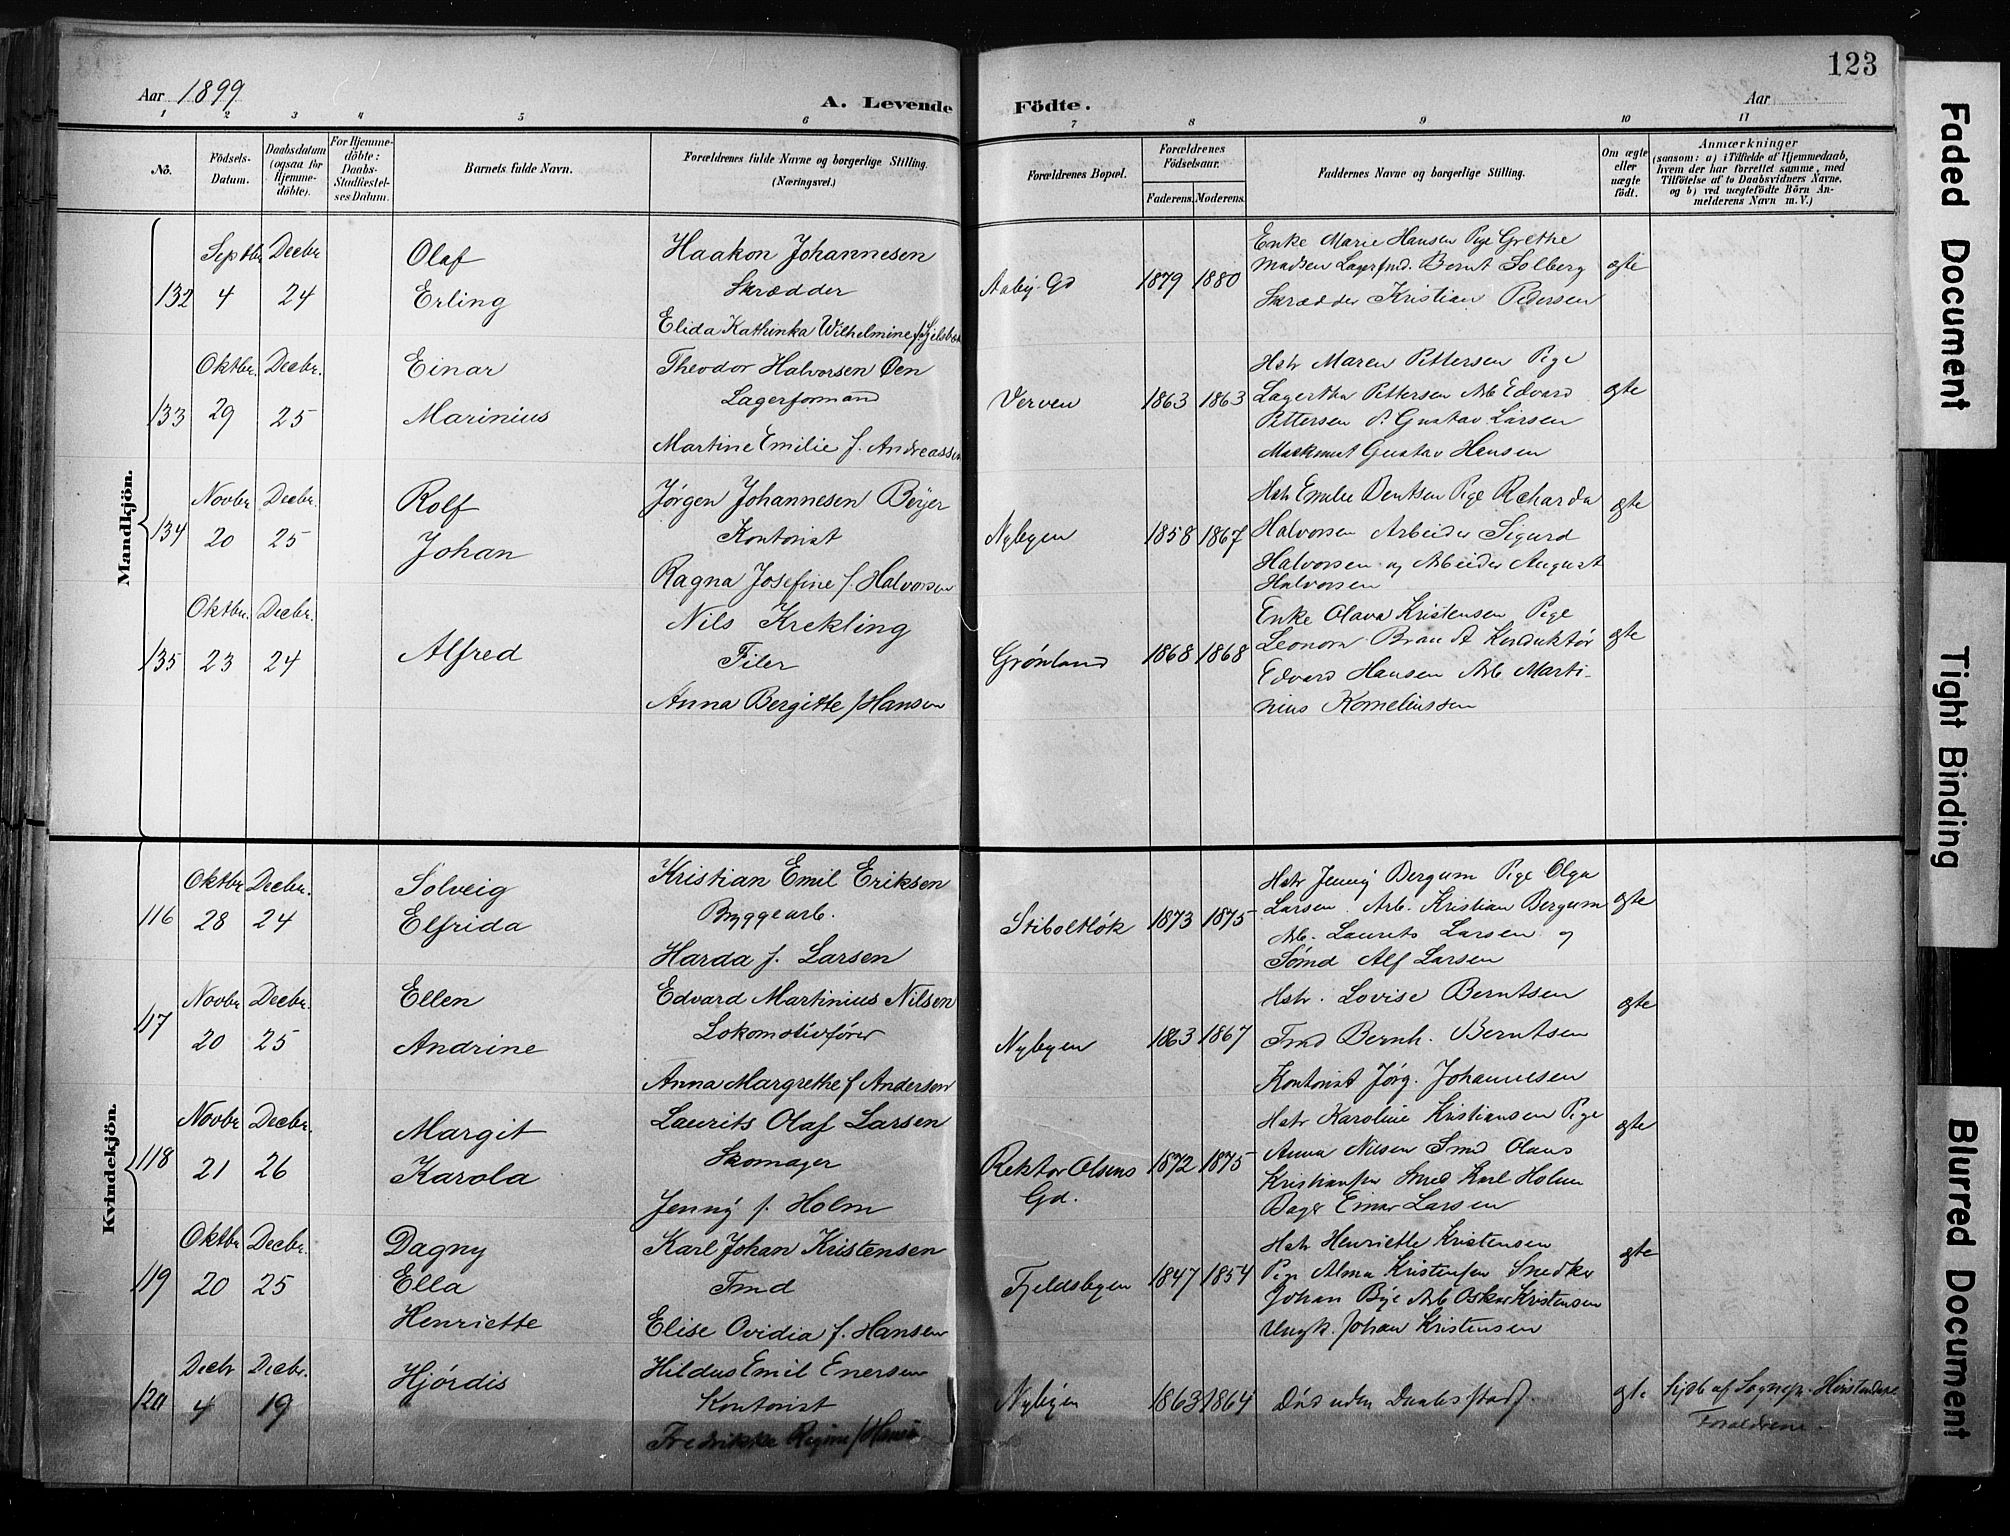 123
Aar 1899
A. Levende Födte.
Aar
1 2 3 4 5 6 7 8 9 10 11
No.
Födsels-Datum.
Daabsdatum (ogsaa for Hjemme-döbte).
For Hjemme-döbte: Daabs-Stadfæstel-ses Datum.
Barnets fulde Navn.
Forældrenes fulde Navne og borgerlige Stilling.
(Næringsvei.)
Forældrenes Bopæl.
Forældrenes Födselsaar.
Faderens. Moderens.
Faddernes Navne og borgerlige Stilling.
Om ægte eller uægte födt.
Anmærkninger
(saasom: a) i Tilfælde af Hjemmedaab,
hvem der har forrettet samme, med
Tilföielse af to Daabsvidners Navne,
og b) ved uægtefödte Börn An-
melderens Navn m. V.)
Mandkjön.
132
Septbr 4
Decbr 24
Olaf
Erling
Haakon Johannesen
Skrædder
Elida Kathinka Wilhelmine f.
Aaby Gd
1879 1880
Enke Marie Hansen Pige Grethe
Madsen Lagerfmd. Bernt Solberg
Skrædder Kristian Pedersen
ægte
133
Oktbr. 29
Decbr. 25
Einar
Marinius
Theodor Halvorsen Øen
Lagerformand
Martine Emilie f. Andreassen
Verven
1863 1863
Hstr Maren Pettersen Pige
Lagertha Pettersen Arb Edvard
Pettersen Gustav Larsen
Gustav Hansen
ægte
134
Novbr 20
Decbr. 25
Rolf
Johan
Jørgen Johannesen Bøyer
Kontorist
Ragna Josefine f. Halvorsen
Nybyen
1858 1867
Hstr Emilie Berntsen Pige Richarda
Halvorsen Arbeider Sigurd
Halvorsen og Arbeider August
Halvorsen
ægte
135
Oktbr. 23
Decbr. 24
Alfred
Nils Krekling
Filer
Anna Bergitte f Hansen
Grønland
1868 1868
Enke Olava Kristensen Pige
Leonora Brandt Konduktør
Edvard Hansen Arb Marti-
nius Korneliussen
ægte
Kvindekjön.
116
Oktbr 28
Decbr. 24
Solveig
Elfrida
Kristian Emil Eriksen
Byggearb.
Harda f. Larsen
Stiboltløk
1873 1875
Hstr Jenny Bergum Pige Olga
Larsen Arb. Kristian Bergum
Arb. Laurits Larsen og
Sømd Alf Larsen
ægte
117
Novbr 20
Decbr. 25
Ellen
Andrine
Edvard Martinius Nilsen
Lokomotivfører
Anna Margrethe f Andersen
Nybyen
1863 1867
Hstr. Lovise Berntsen
Tmd Bernh. Berntsen
Kontorist Jørg. Johannesen
ægte
118
Novbr 21
Decbr. 26
Margit
Karola
Laurits Olaf Larsen
Skomager
Jenny f. Holm
Rektor Olsens
Gd.
1872 1875
Hstr Karoline Kristiansen Pige
Anna Nilsen Smd Olaus
Kristiansen Smed Karl Holm
Bager Einar Larsen
ægte
119
Oktbr 20
Decbr. 25
Dagny
Ella
Henriette
Karl Johan Kristensen
Tmd
Elise Ovidia f. Hansen
Fjeldsbyen
1847 1854
Hstr Henriette Kristensen
Pige Alma Kristensen Snedker
Johan Bye Arb Oskar Kristensen
Ungk. Johan Kristensen
ægte
120
Decbr 4
Decbr. 19
Hjørdis
Hildus Emil Enersen
Kontorist
Fredrikke Regine f Hans
Nybyen
1863 1864
Død uden Daabsstadf.
ægte
af Sognepr.
Forældrene.
Faded Document
Tight Binding
Blurred Document